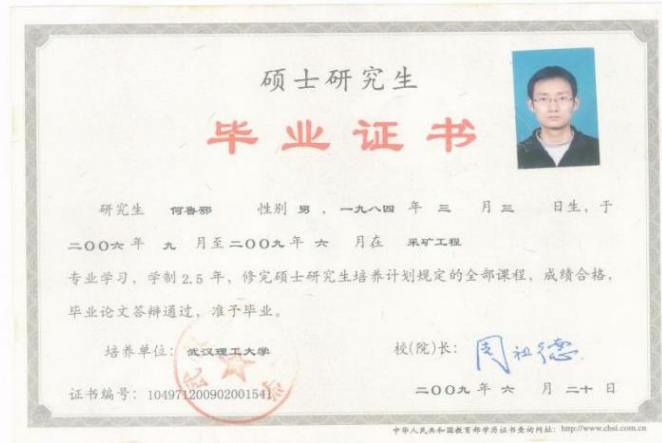 硕士研究生
毕业证书
研究生 何鲁鄂 性别 男 ，一九八四 年 三 月 三 日生，于
二〇〇六 年 九 月至 二〇〇九 年 六 月在 采矿工程
专业学习，学制 2.5 年，修完硕士研究生培养计划规定的全部课程，成绩合格，
毕业论文答辩通过，准予毕业。
培养单位：武汉理工大学
校(院)长：周祖德
证书编号：104971200902001541
二〇〇九 年 六 月 二十 日
中华人民共和国教育部学历证书查询网址：http://www.chsi.com.cn